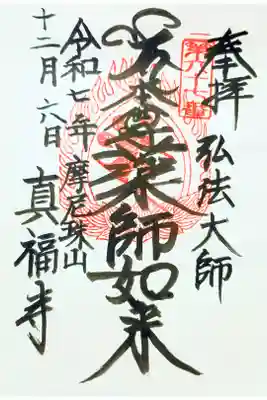 奉拝
弘法大師
本尊薬師如来
摩尼珠山
真福寺
令和七年
十二月六日